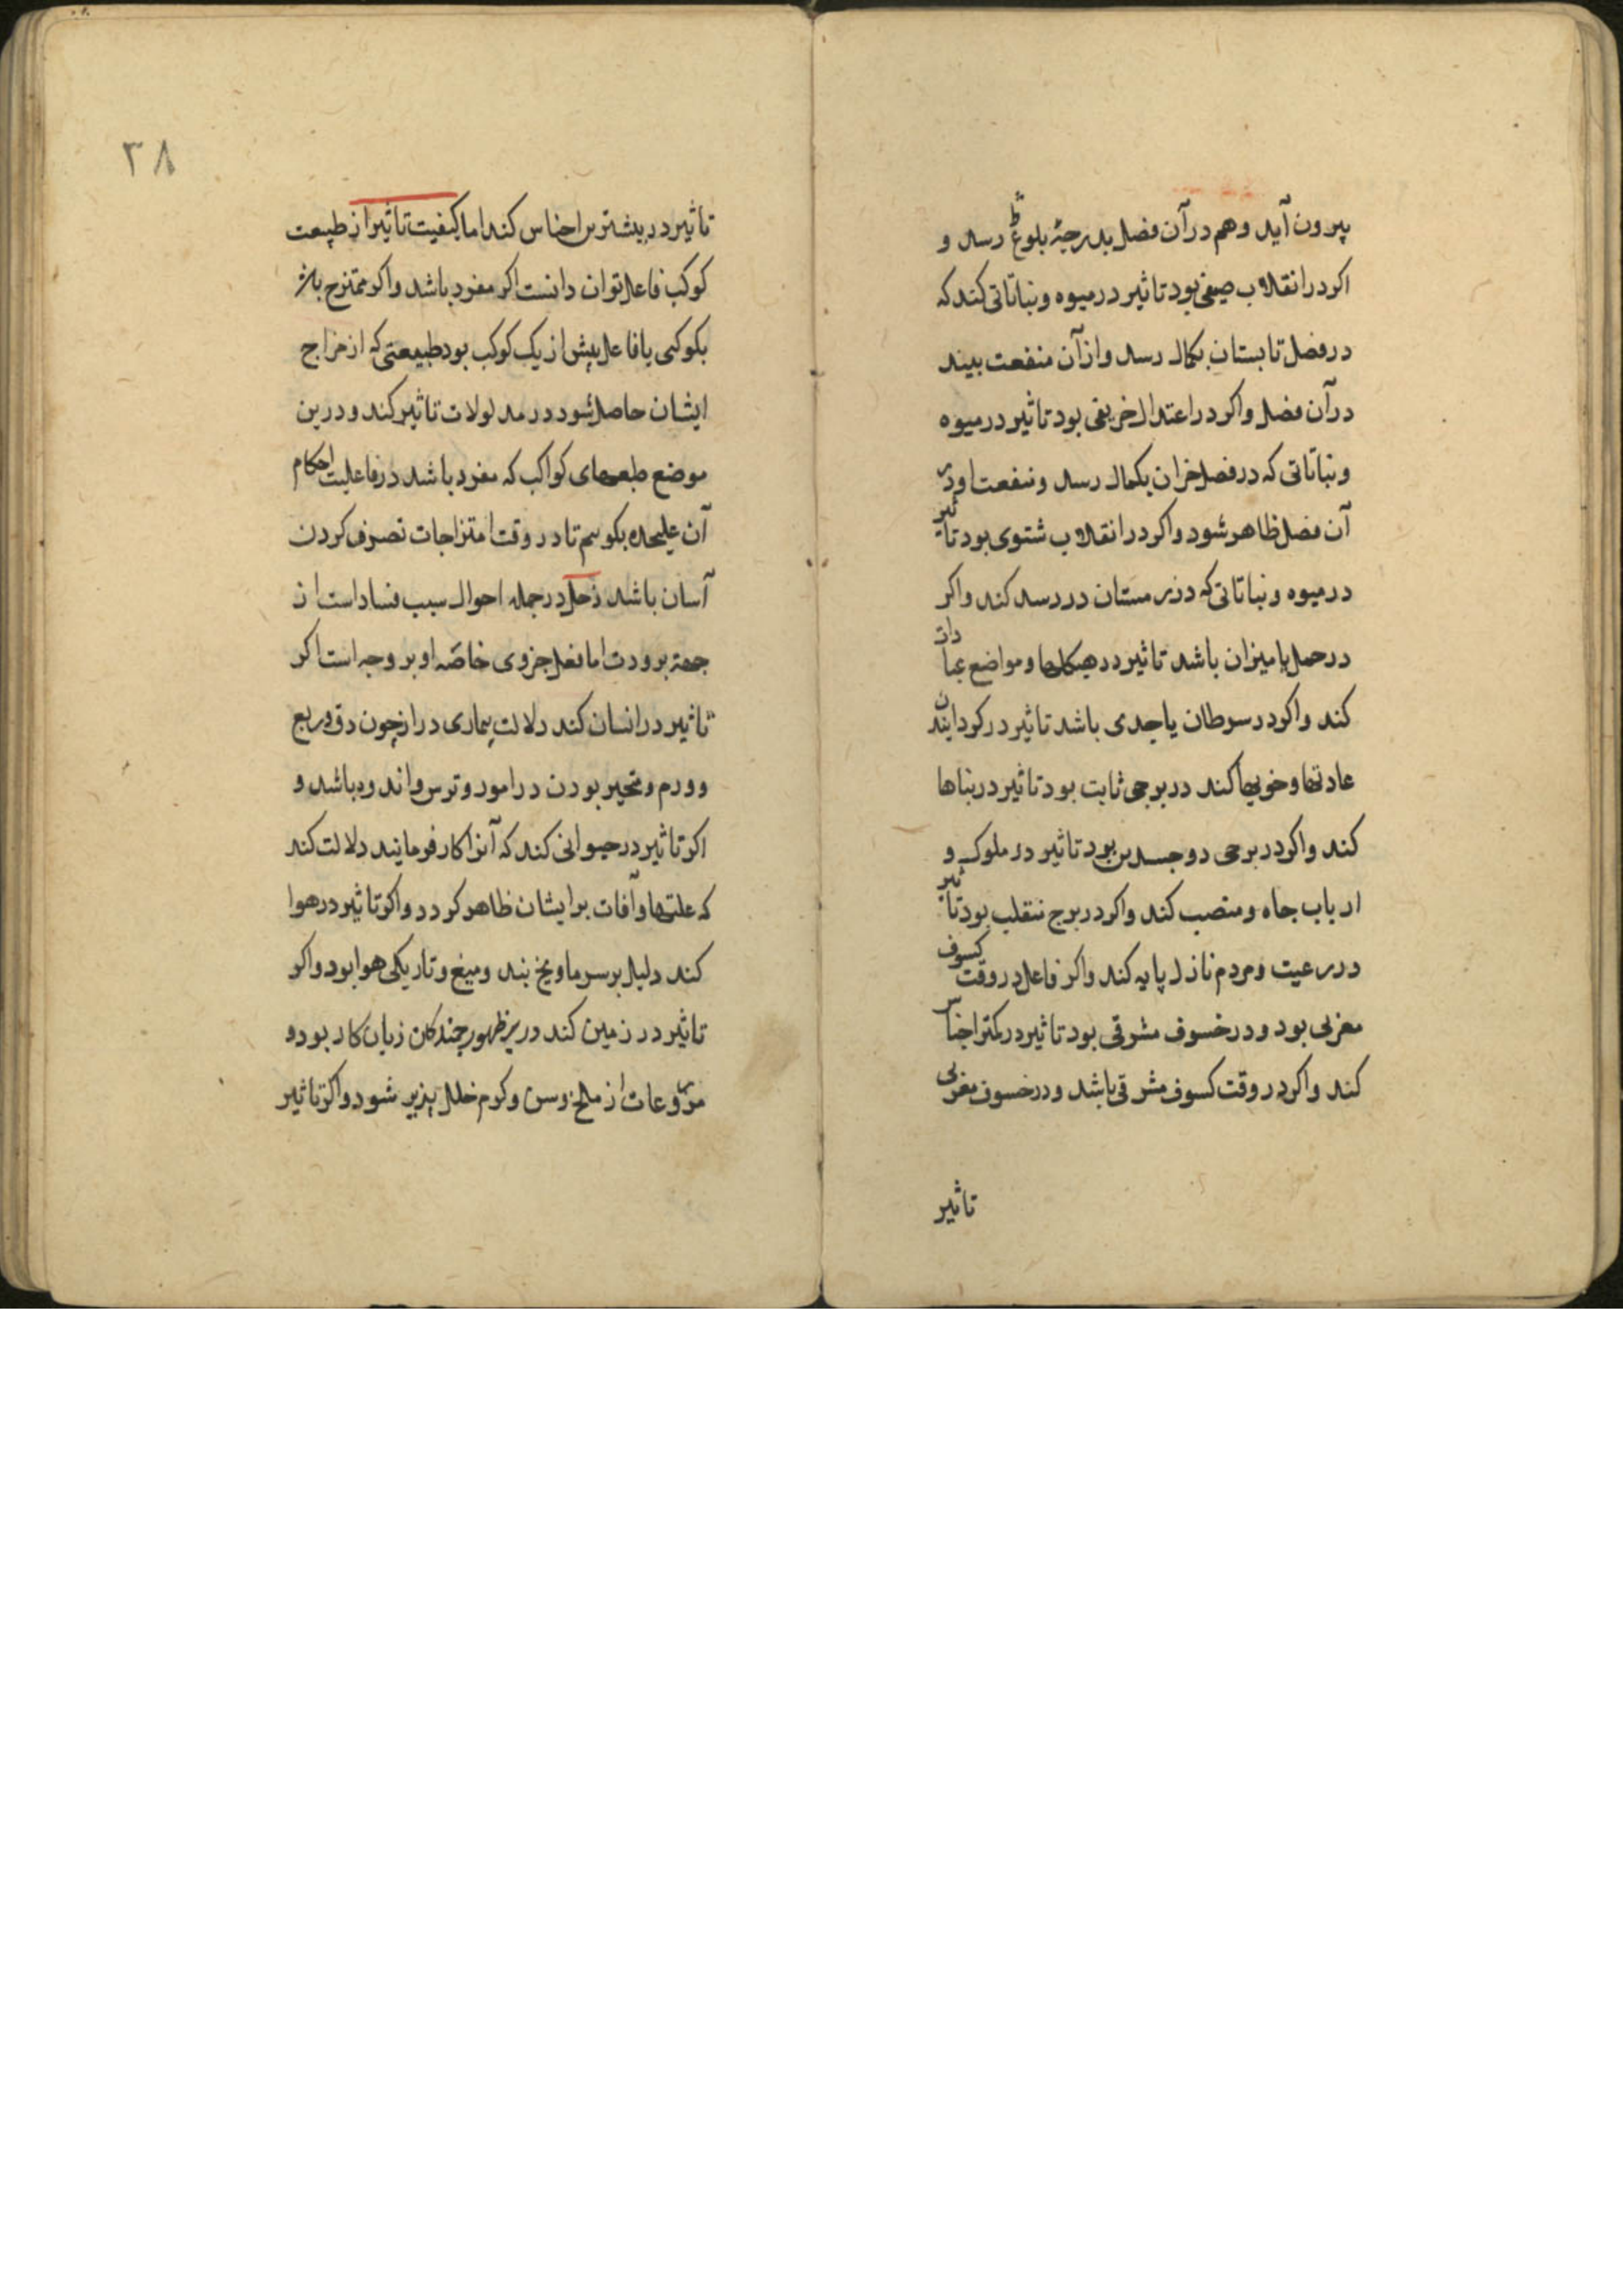 بیرون آید و هم در آن فصل بدرجهٔ بلوغ رسد و
اکر در انقلاب صیفی بود تاثیر در میوه و نباتاتی کند که
در فصل تابستان بکمال رسد و از آن منفعت بیند
در آن فصل و اکر در اعتدال خریفی بود تاثیر در میوه
و نباتاتی که در فصل خزان بکمال رسد و منفعت او در
آن فصل ظاهر شود و اکر در انقلاب شتوی بود تاثیر
در میوه و نباتاتی که در زمستان در رسد کند و اکر
در حمل یا میزان باشد تاثیر در هیکلها و مواضع عبادات
کند و اکر در سرطان یا جدی باشد تاثیر در کردانیدن
عادتها و خویها کند در برجی ثابت بود تاثیر در بناها
کند و اکر در برجی دو جسدین بود تاثیر در ملوک و
ارباب جاه و منصب کند و اکر در برج منقلب بود تاثیر
در رعیت و مردم نازل پایه کند و اکر فاعل در وقت کسوف
مغربی بود و در خسوف مشرقی بود تاثیر در کمتر اجناس
کند و اکر در وقت کسوف مشرقی باشد و در خسوف مغربی
تاثیر
٣٨
تاثیر در بیشترین اجناس کند اما کیفیت تاثیر از طبیعت
کوکب فاعل توان دانست اکر مفرد باشد و اکر ممتزج باشد
بکوکبی یا فاعل بیش از یک کوکب بود طبیعتی که از مزاج
ایشان حاصل شود در مدلولات تاثیر کند و درین
موضع طبعهای کواکب که مفرد باشد در فاعلیت احکام
آن علیحده بکوییم تا در وقت امتزاجات تصرف کردن
آسان باشد زحل در جمله احوال سبب فساد است از
جهة برودت اما فعل جزوی خاصّه او بر وجه است اکر
تاثیر در انسان کند دلالت بیماری دراز چون دق و ربع
و ورم و متحیر بودن در امور و ترس و اندوه باشد و
اکر تاثیر در حیوانی کند که آنرا کار فرمایند دلالت کند
که علتها و آفات بر ایشان ظاهر کردد و اکر تاثیر در هوا
کند دلیل بر سرما و یخ بند و میغ و تاریکی هوا بود و اکر
تاثیر در زمین کند در بر ظهور چندکان زیان کار بود و
مزروعات از ملخ و سن و کرم خلل پذیر شود و اکر تاثیر